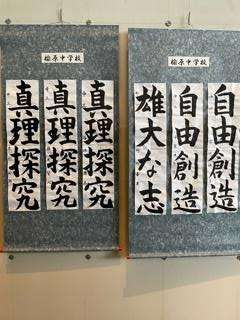 楡原中学校
自由創造
自由創造
雄大な志
楡原中学校
真理探究
真理探究
真理探究